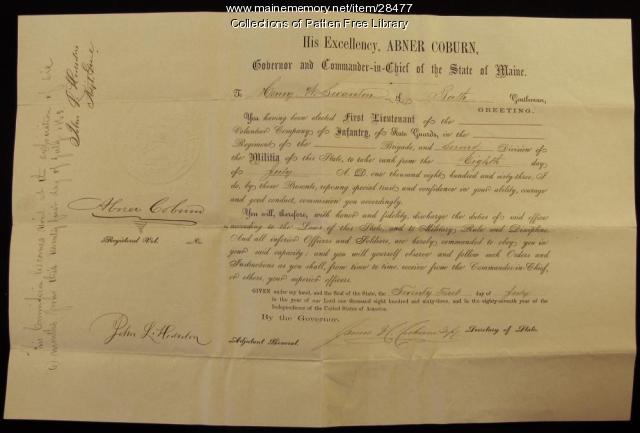 www.mainememory.net/item/28477
Collections of Patten Free Library
His Excellency, ABNER COBURN,
Governor and Commander-in-Chief of the State of Maine.
To Henry W. Swanton of Bath Gentleman,
GREETING.
You having been elected First Lieutenant of the
Volunteer Company of Infantry, of State Guards, in the
Regiment of the Brigade, and Second Division of
the Militia of this State, to take rank from the Eighth day
of July A. D. one thousand eight hundred and sixty-three, I
do, by these Presents, reposing special trust and confidence in your ability, courage
and good conduct, commission you accordingly.
You will, therefore, with honor and fidelity, discharge the duties of said office
according to the Laws of this State, and to Military Rule and Discipline.
And all inferior Officers and Soldiers, are hereby commanded to obey you in
your said capacity; and you will yourself observe and follow such Orders and
Instructions as you shall, from time to time, receive from the Commander-in-Chief,
or others, your superior officers.
GIVEN under my hand, and the Seal of the State, the Twenty First day of July
in the year of our Lord one thousand eight hundred and sixty-three, and in the eighty-seventh year of the
Independence of the United States of America.
By the Governor.
Secretary of State.
Abner Coburn
Registered Vol. No.
John L. Hodsdon
Adjutant General.
This Commission becomes void on the expiration of
months from this twenty first day of July 1863
John L Hodsdon